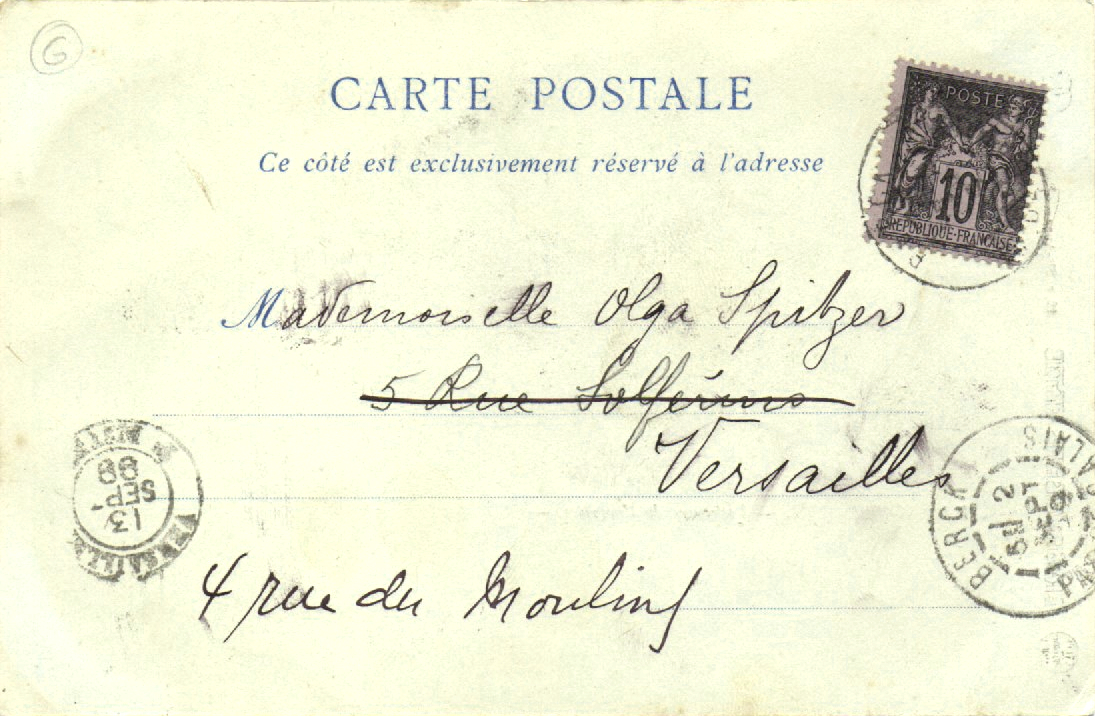 G
CARTE POSTALE
Ce côté est exclusivement réservé à l'adresse
POSTE
10
REPUBLIQUE·FRANÇAISE
Mademoiselle Olga Spitzer
5 Rue Solférino
Versailles
4 rue du Moulins
VERSAILLES
13
SEP
BERCK
2
SEPT
CALAIS